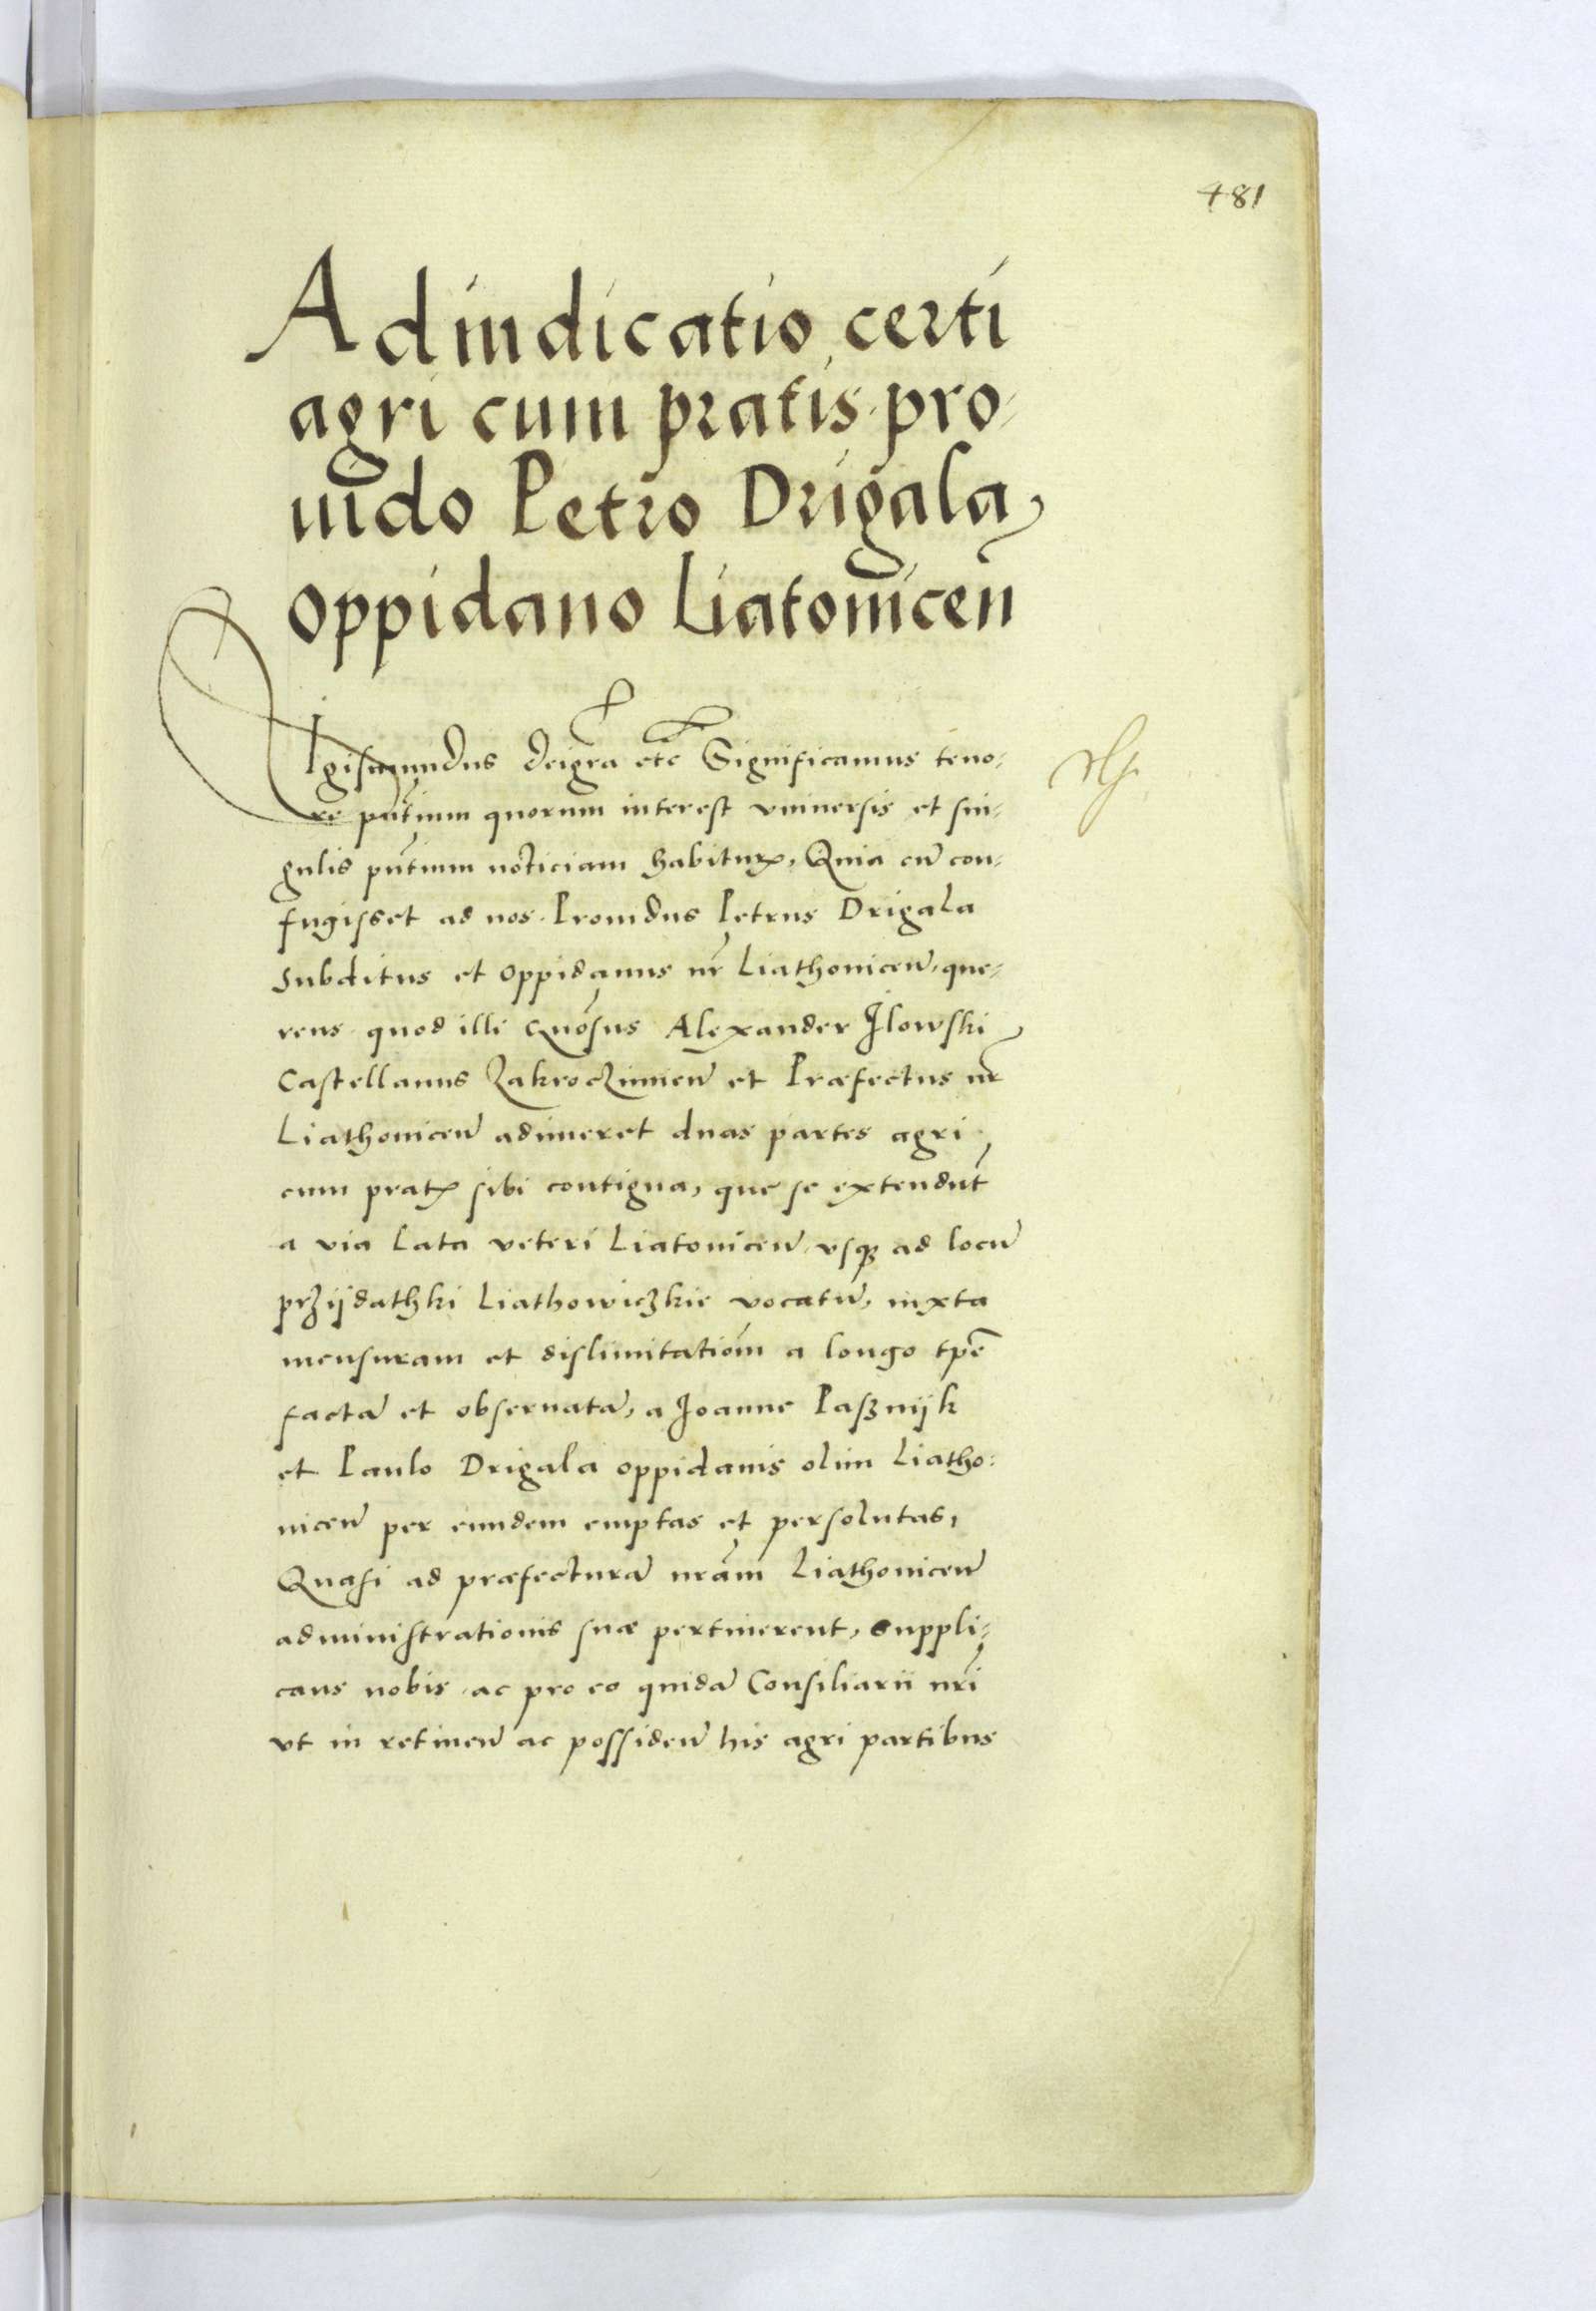 481
Adiudicatio certi
agri cum pratis pro-
uido Petro Drigala
oppidano Liatouicen̄
Sigismundus Dei gr̃a etc̃ Significamus teno-
re pn̄tium quorum interest vniuersis et sin-
gulis pn̄tium noticiam habituꝝ, Quia cū con-
fugisset ad nos Prouidus Petrus Drigala
subditus et oppidanus nr̃ Liathouicen̄, que-
rens quod ille
Alexander Ilowski
Castellanus Zakroczimien̄ et Præfectus nr̃
Liathouicen̄ adimeret duas partes agri
cum pratꝭ sibi contigua, que se extendūt
a via lata veteri Liatouicen̄ vsqꝫ ad locū
przijdathki Liathowiczkie vocatū, iuxta
mensuram et dislimitatiōm a longo tp̄e
factā et obseruatā, a Joanne Pasznijk
et Paulo Drigala oppidanis olim Liatho-
uicen̄ per eundem emptas et persolutas,
Quasi ad præfecturā nr̃am Liathouicen̄
administrationis suæ pertinerent, suppli-
cans nobis ac pro eo quidā Consiliarii nr̃i
vt in retinen̄ ac possiden̄ his agri partibus